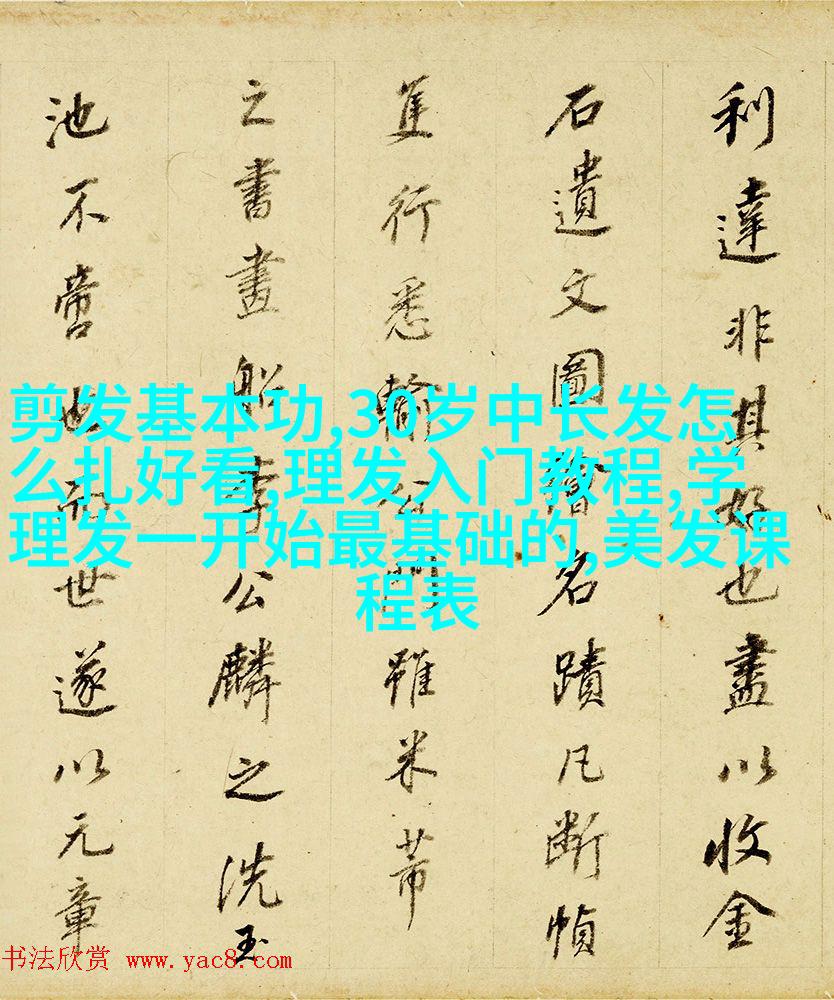 利達非其好也盡以收金
石遺文圖繪名蹟凡斷幀
隻行悉輸公門雖米芾
之書畫船李公麟之洗玉
池不啻也而世遂以元章
剪发基本功,30岁中长发怎
么扎好看,理发入门教程,学
理发一开始最基础的,美发课
程表
书法欣赏 www.yac8.com